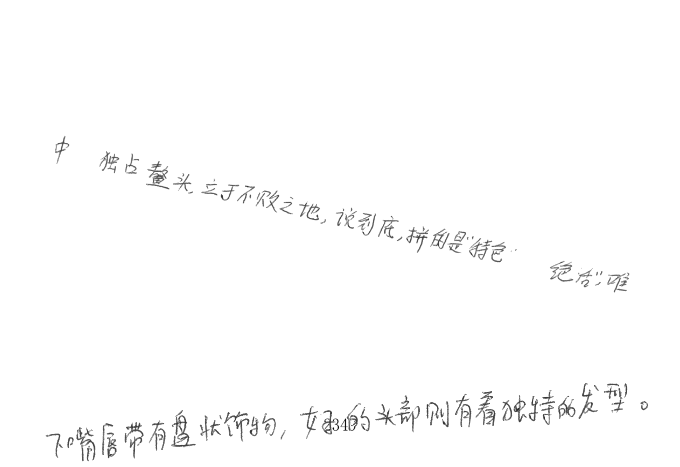 中 独占鳌头,立于不败之地,说到底,拼的是“特色” 绝活”,唯
下嘴唇带有盘状饰物,女子的头部则有着独特的发型。